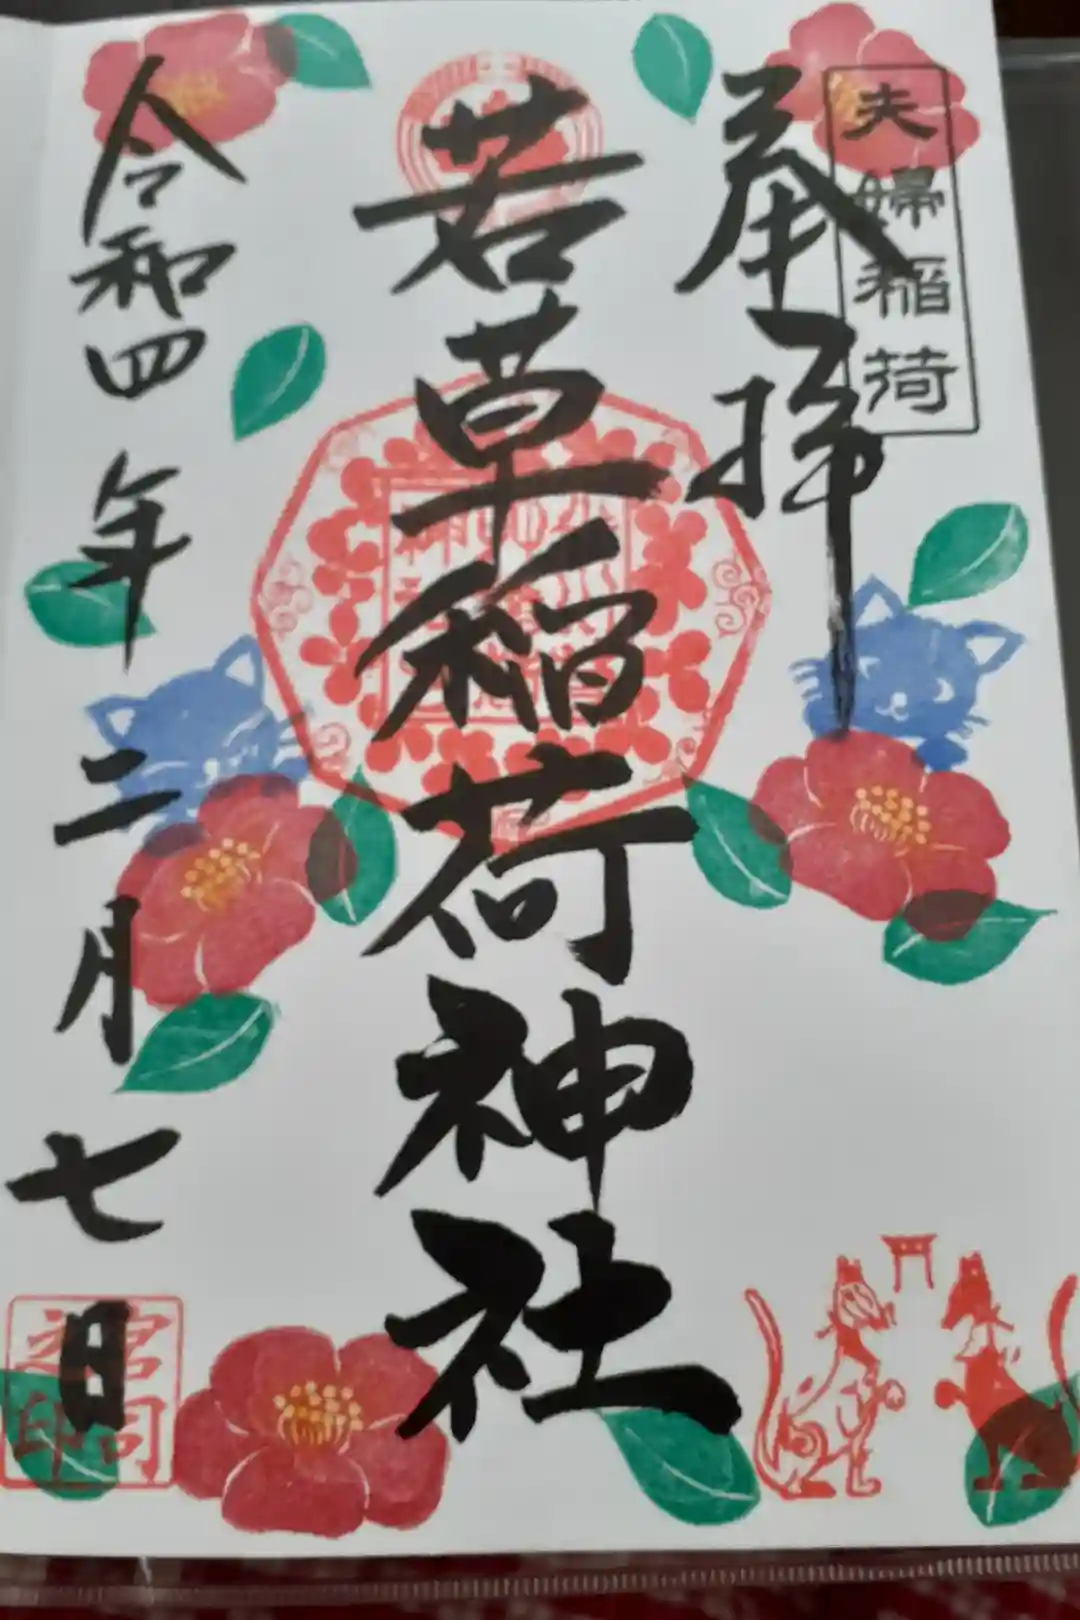 夫婦稲荷
奉拝
若草稲荷神社
令和四年二月七日
宮司之印